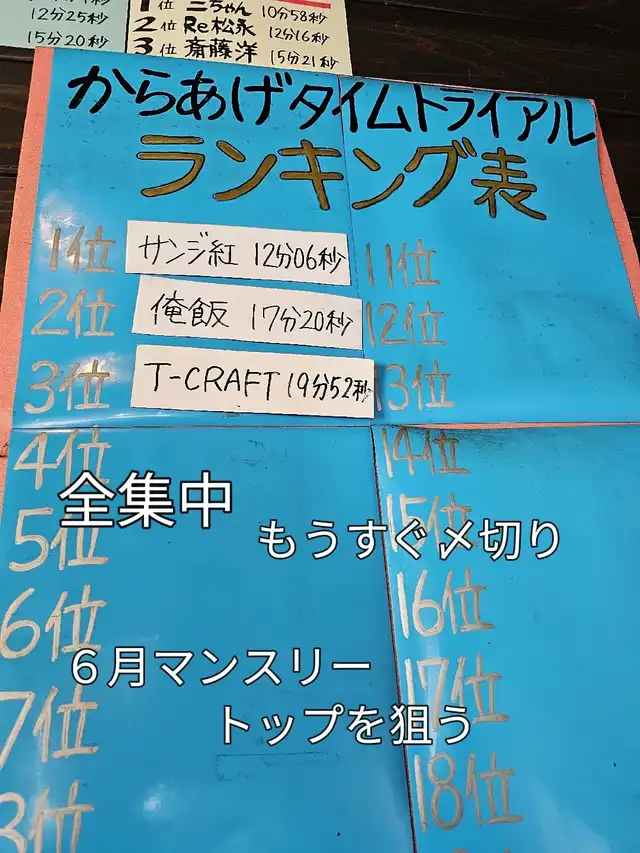 12分25秒
15分20秒
1位 ニちゃん 10分58秒
2位 Re松永 12分16秒
3位 斎藤洋 15分21秒
からあげタイムトライアル
ランキング表
1位 サンジ紅 12分06秒
2位 俺飯 17分20秒
3位 T-CRAFT 19分52秒
4位
5位
6位
7位
11位
12位
13位
14位
15位
16位
17位
18位
全集中
もうすぐ〆切り
6月マンスリー
トップを狙う